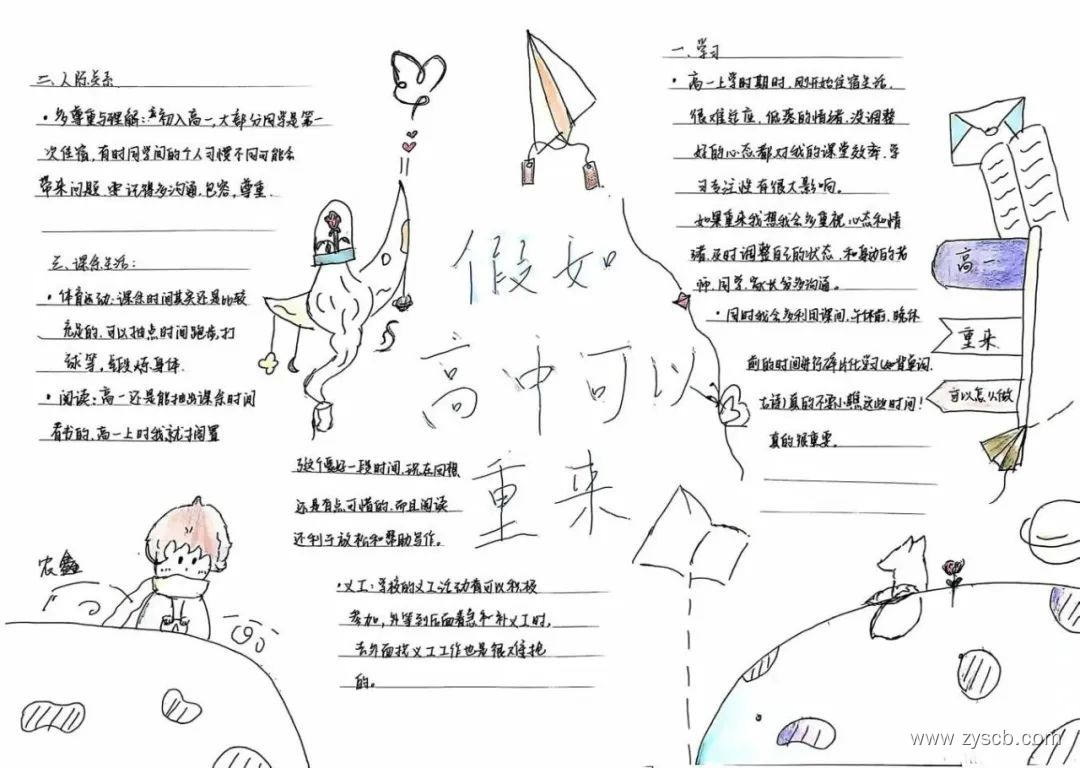 假如
高中可以
重来
一、学习
• 高一上学时期时,刚开始住宿生活,
很难适应,低落的情绪,没调整
好的心态都对我的课堂效率,学
习专注性有很大影响。
如果重来我想我会多重视心态和情
绪,及时调整自己的状态,和身边的老
师,同学,家长多多沟通。
• 同时我会多利用课间,午休前,晚休
前的时间进行碎片化学习(如背单词,
古诗)真的不要小瞧这些时间!
真的很重要。
二、人际关系
• 多尊重与理解:初入高一,大部分同学是第一
次住宿,有时同学间的个人习惯不同可能会
带来问题,要记得多沟通,包容,尊重.
三、课余生活:
• 体育运动:课余时间其实还是比较
充足的,可以抽点时间跑步,打
球等,锻炼身体.
• 阅读:高一还是能抽出课余时间
看书的,高一上时我就搁置
了这个爱好一段时间,现在回想
还是有点可惜的,而且阅读
还利于放松和帮助写作。
• 义工:学校的义工活动有可以积极
参加,外等到后面着急和补义工时,
去外面找义工工作也是很难抢
的。
高一
重来
可以怎么做
农鑫
www.zyscb.com